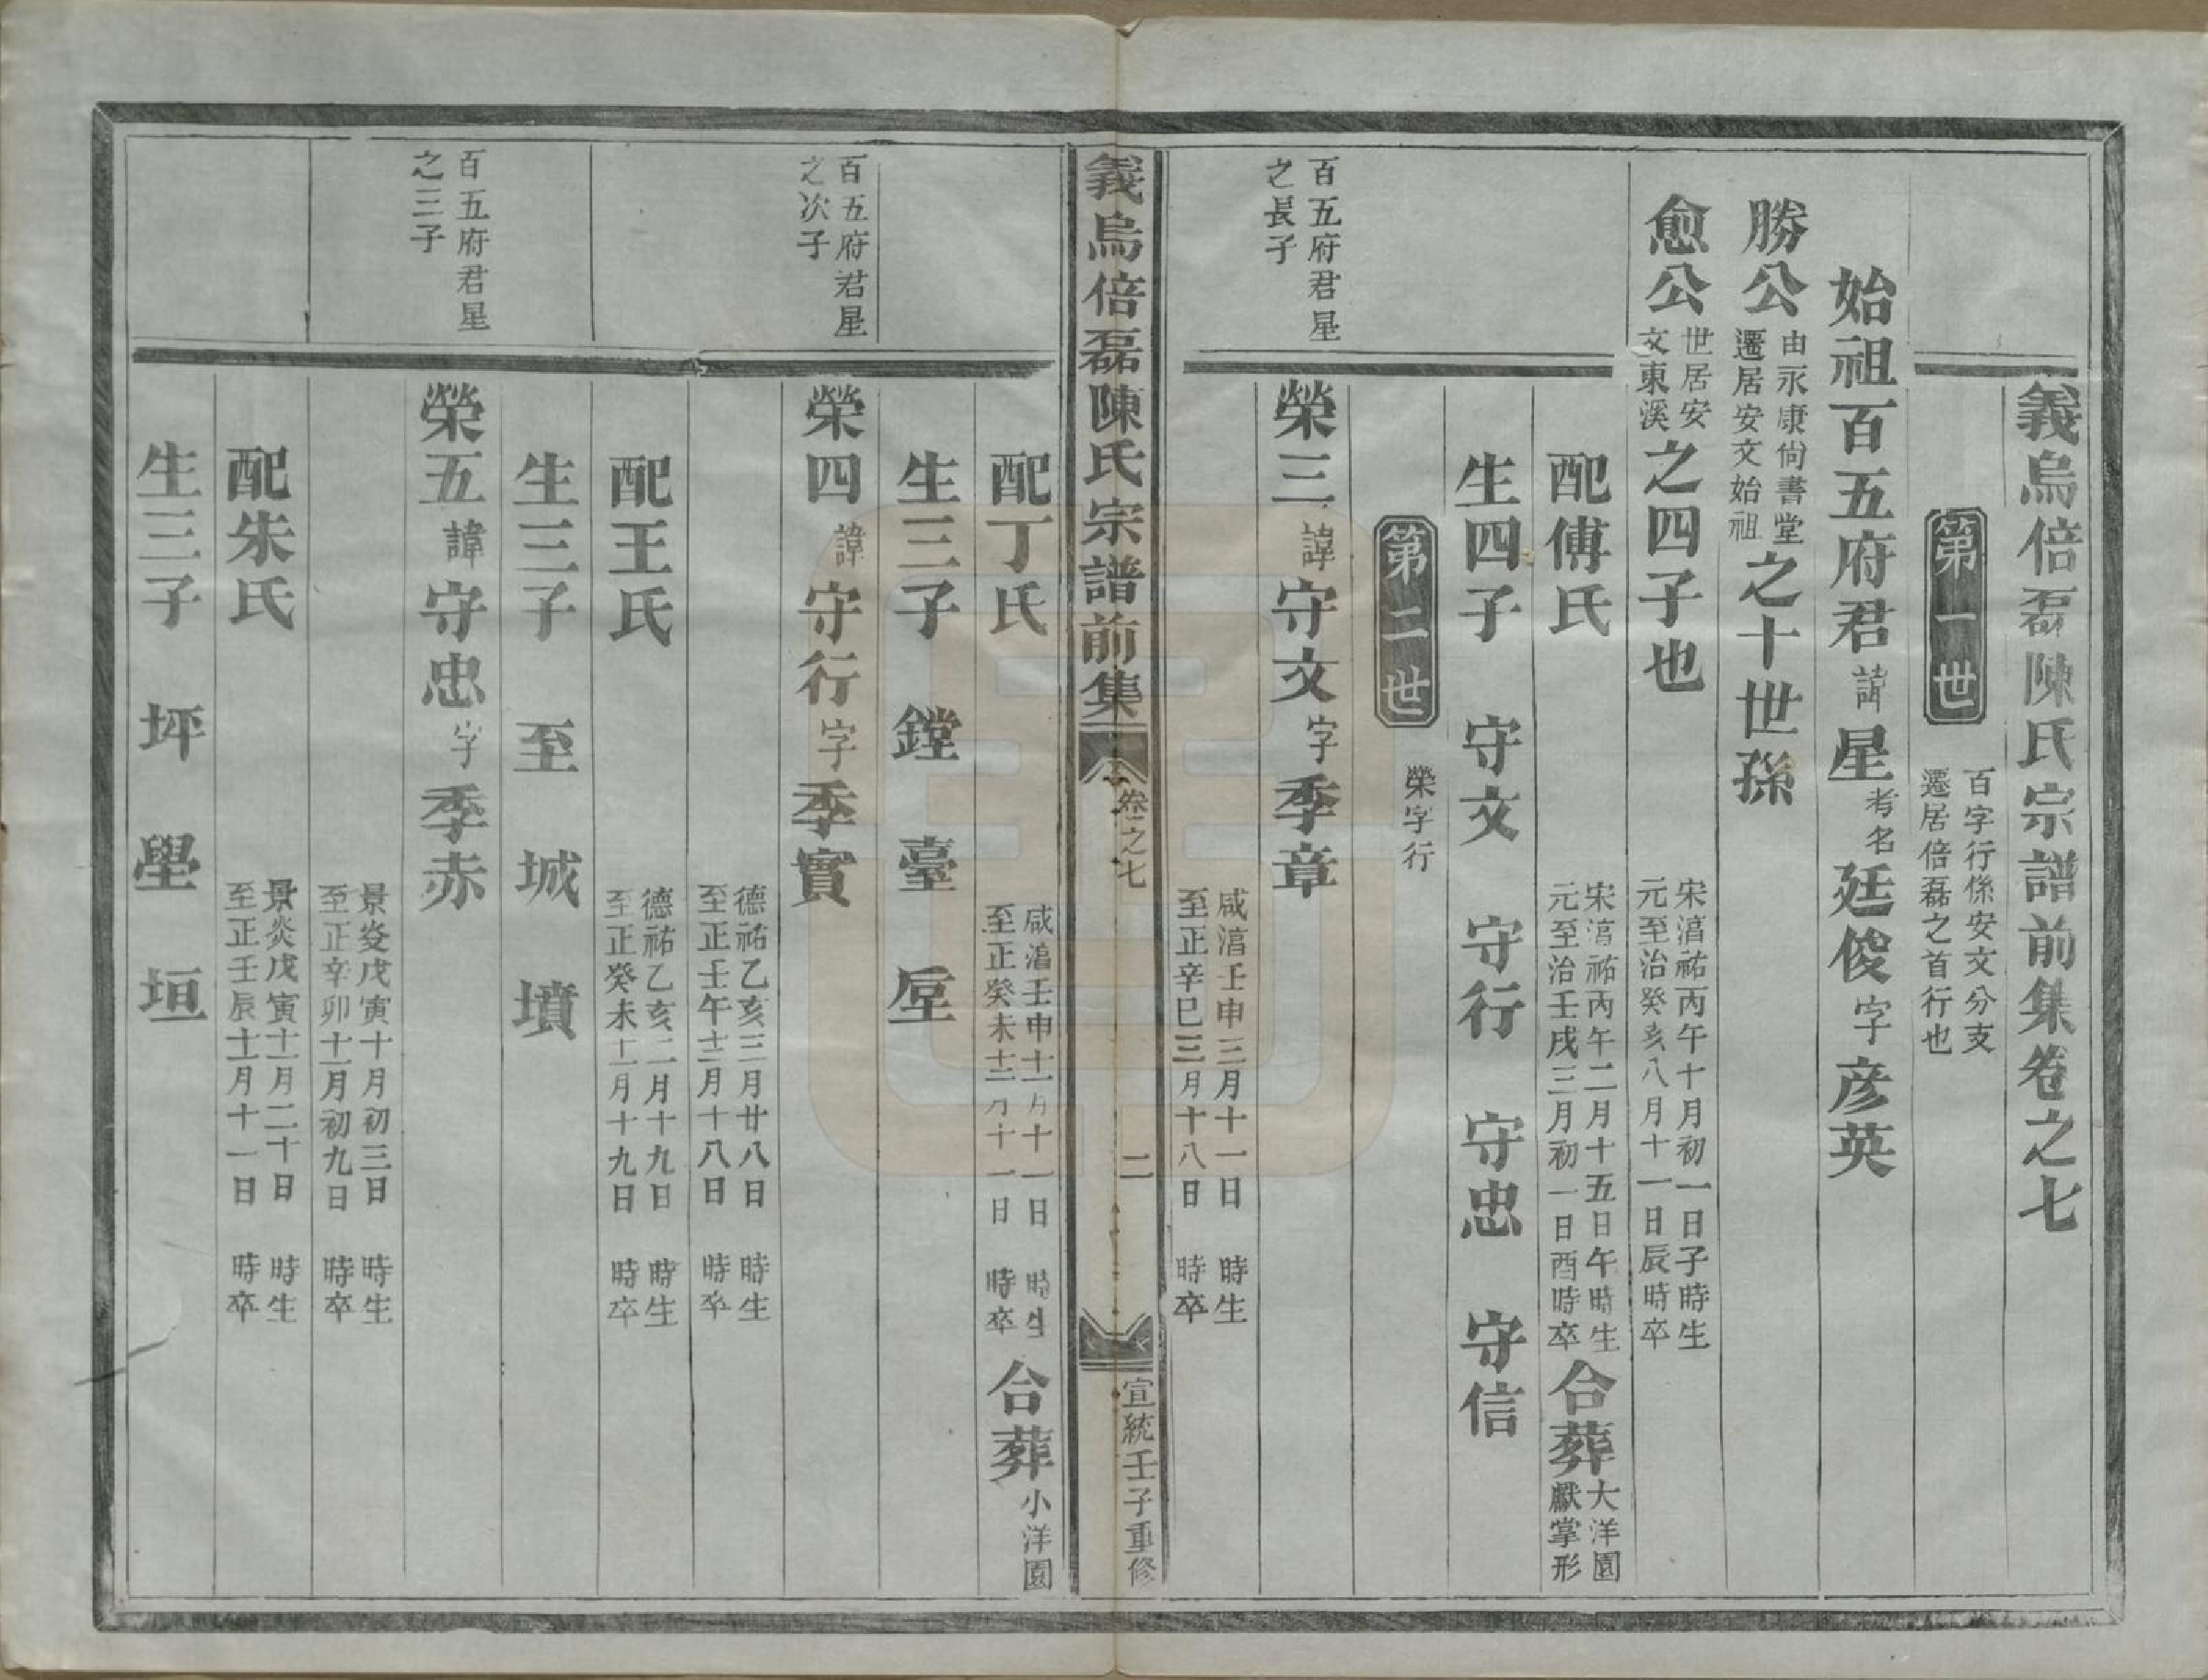 義烏倍磊陳氏宗譜前集卷之七
第一世 百字行係安文分支遷居倍磊之首行也
始祖百五府君諱星考名廷俊字彦英
勝公由永康尙書堂遷居安文始祖之十世孫
愈公世居安文東溪之四子也 宋湻祐丙午十月初一日子時生元至治癸亥八月十一日辰時卒
配傅氏 宋湻祐丙午二月十五日午時生元至治壬戌三月初一日酉時卒合葬大洋園獻掌形
生四子 守文 守行 守忠 守信
第二世 榮字行
百五府君星之長子
榮三諱守文字季章
咸湻壬申三月十一日 時生至正辛巳三月十八日 時卒
義烏倍磊陳氏宗譜前集 卷之七 二 宣統壬子重修
配丁氏 咸湻壬申十二月十一日 時生至正癸未十二月十一日 時卒合葬小洋園
生三子 鏜 臺 垕
百五府君星之次子
榮四諱守行字季實
德祐乙亥三月廿八日 時生至正壬午十二月十八日 時卒
配王氏 德祐乙亥二月十九日 時生至正癸未十二月十九日 時卒
生三子 至 城 墳
百五府君星之三子
榮五諱守忠字季赤
景炎戊寅十月初三日 時生至正辛卯十二月初九日 時卒
配朱氏 景炎戊寅十二月二十日 時生至正壬辰十二月十一日 時卒
生三子 坪 壆 垣